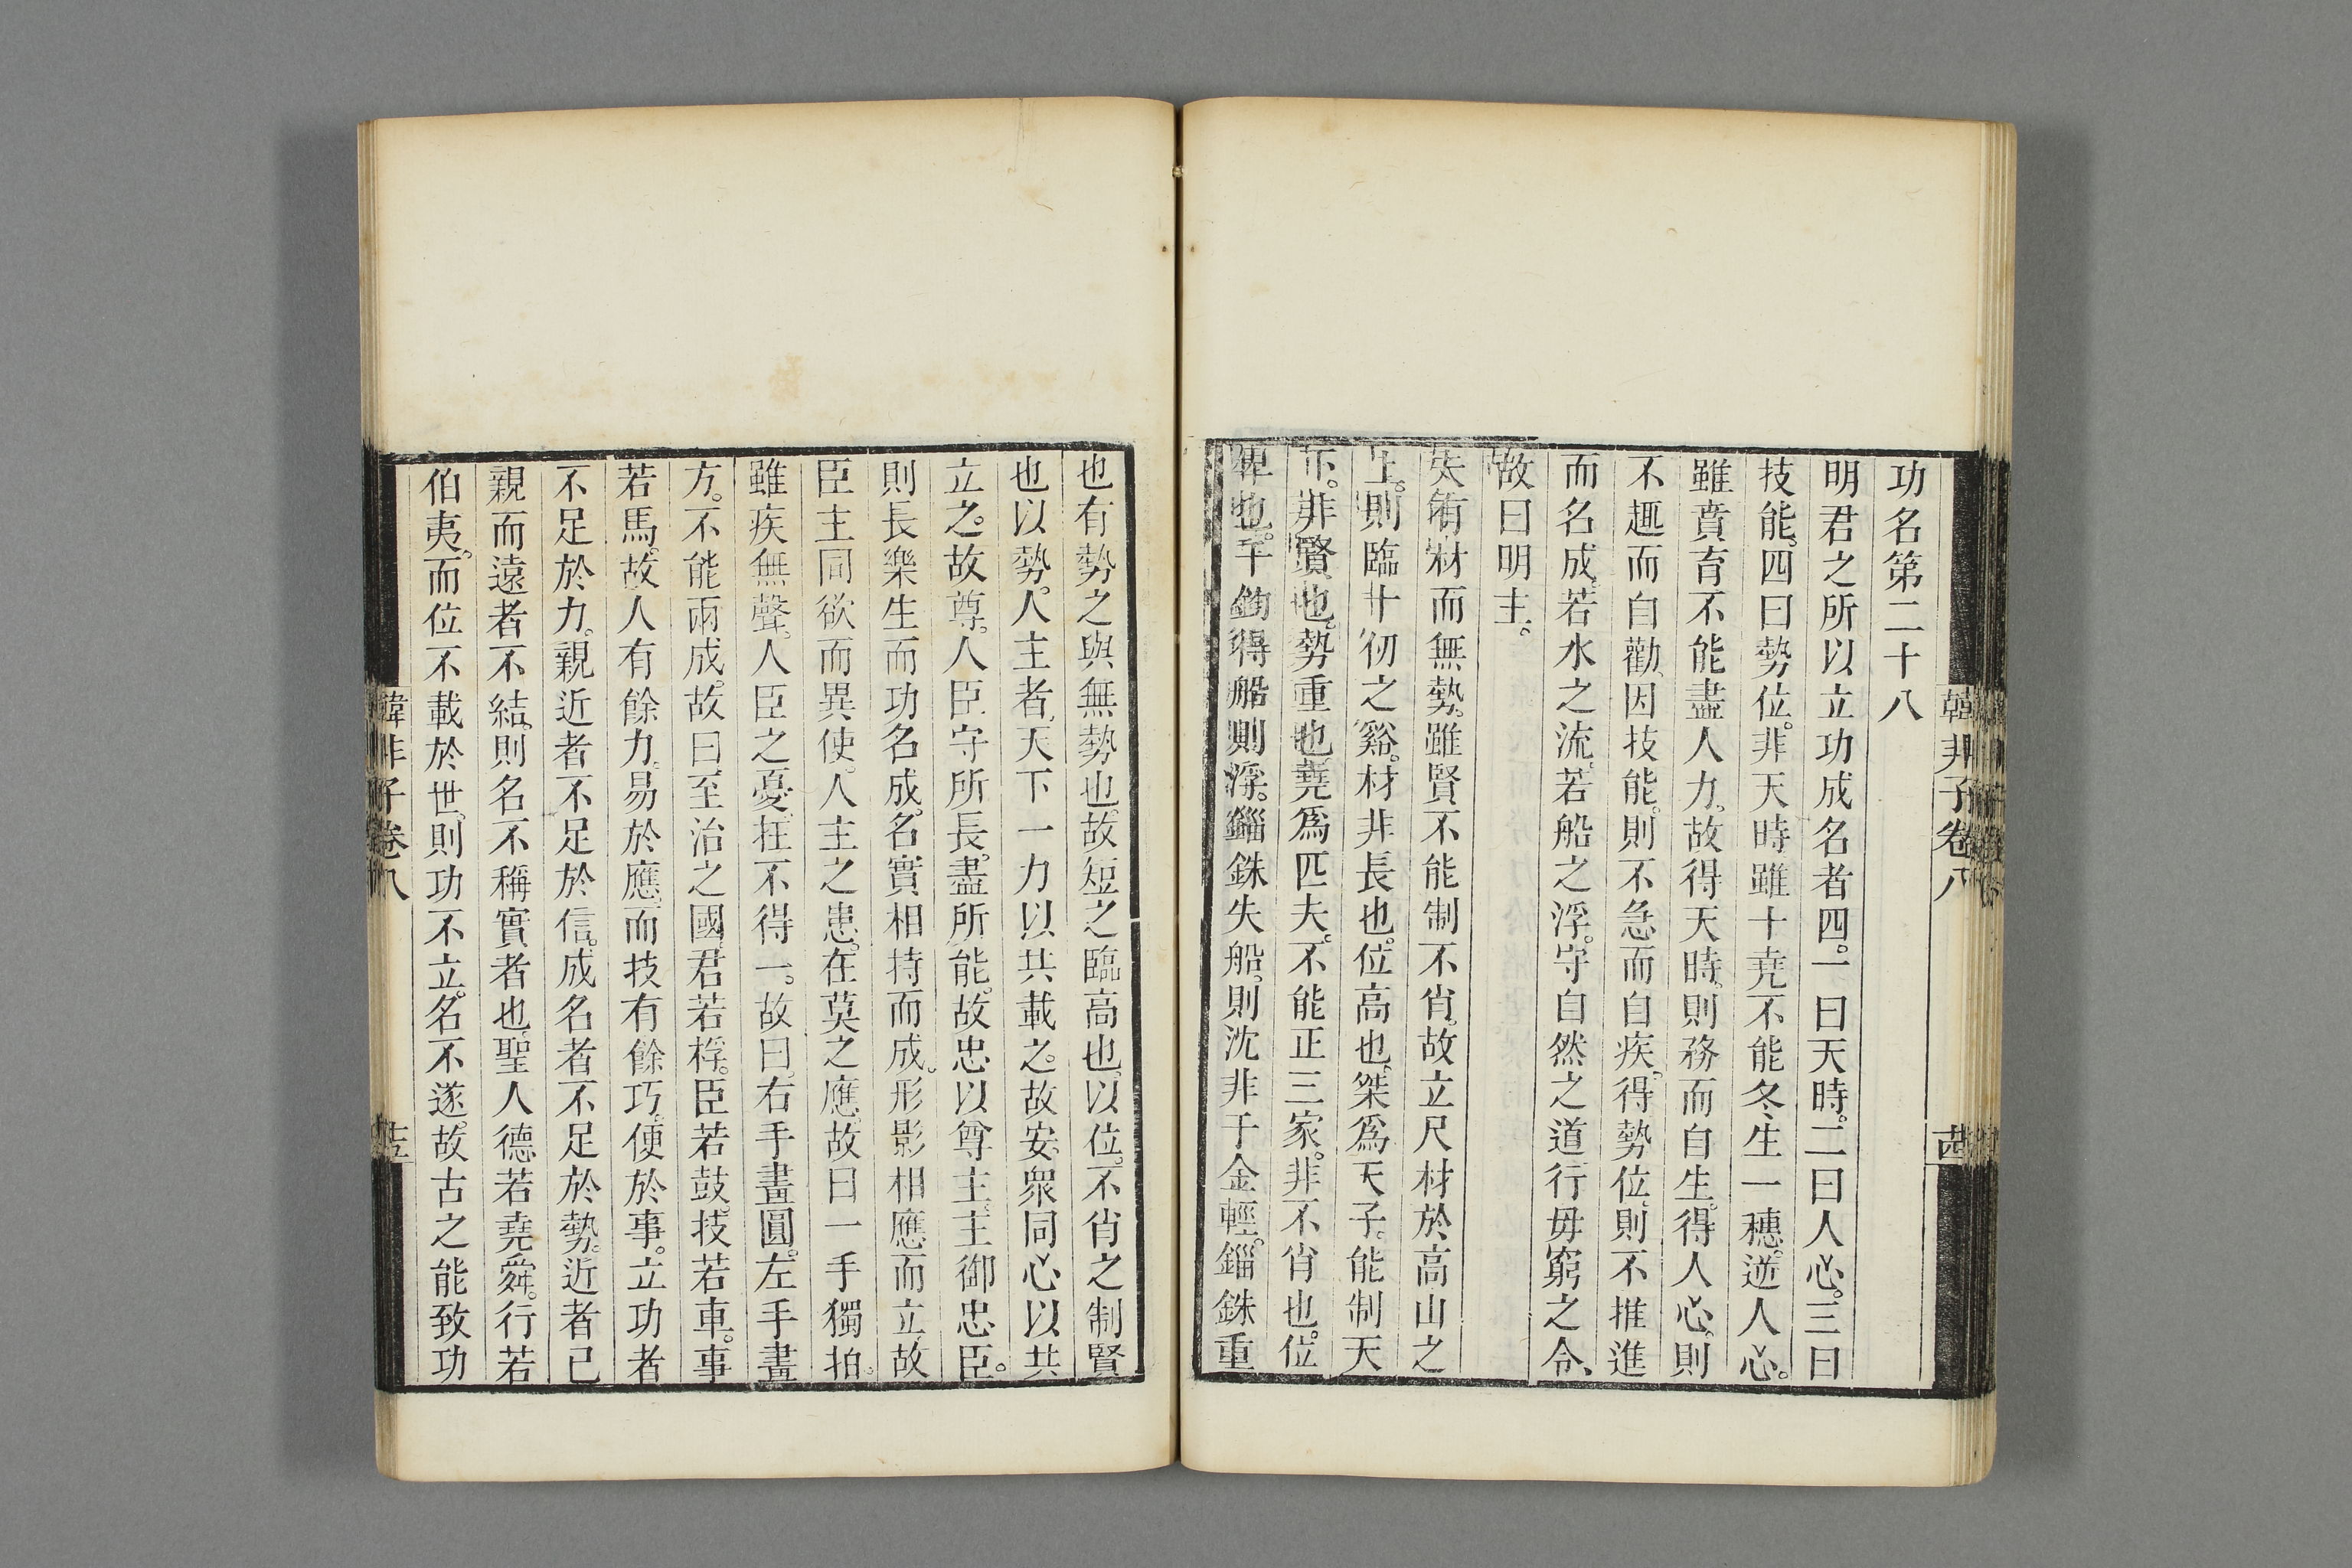 韓非子卷八
功名第二十八
明君之所以立功成名者四。一曰天時。二曰人心。三曰
技能。四曰勢位。非天時雖十堯不能冬生一穗。逆人心。
雖賁育不能盡人力。故得天時。則務而自生。得人心。則
不趣而自勸。因技能。則不急而自疾。得勢位。則不推進
而名成。若水之流。若船之浮。守自然之道行毋窮之令、
故曰明主。
夫有材而無勢。雖賢不能制不肖。故立尺材於高山之
上。則臨十仞之谿。材非長也。位高也。桀爲天子。能制天
下。非賢也。勢重也。堯爲匹夫。不能正三家。非不肖也。位
卑也。千鈞得船則浮。錙銖失船。則沈非千金輕。錙銖重
也有勢之與無勢也。故短之臨高也。以位。不肖之制賢
也以勢。人主者。天下一力以共載之。故安。衆同心以共
立之。故尊。人臣守所長。盡所能。故忠以尊主。主御忠臣。
則長樂生而功名成。名實相持而成。形影相應而立。故
臣主同欲而異使。人主之患。在莫之應。故曰一手獨拍。
雖疾無聲。人臣之憂。在不得一。故曰。右手畫圓。左手畫
方。不能兩成。故曰至治之國。君若桴。臣若鼓。技若車。事
若馬。故人有餘力。易於應。而技有餘巧。便於事。立功者
不足於力。親近者不足於信。成名者不足於勢。近者已
親而遠者不結。則名不稱實者也。聖人德若堯舜。行若
伯夷。而位不載於世。則功不立。名不遂。故古之能致功
韓非子卷八